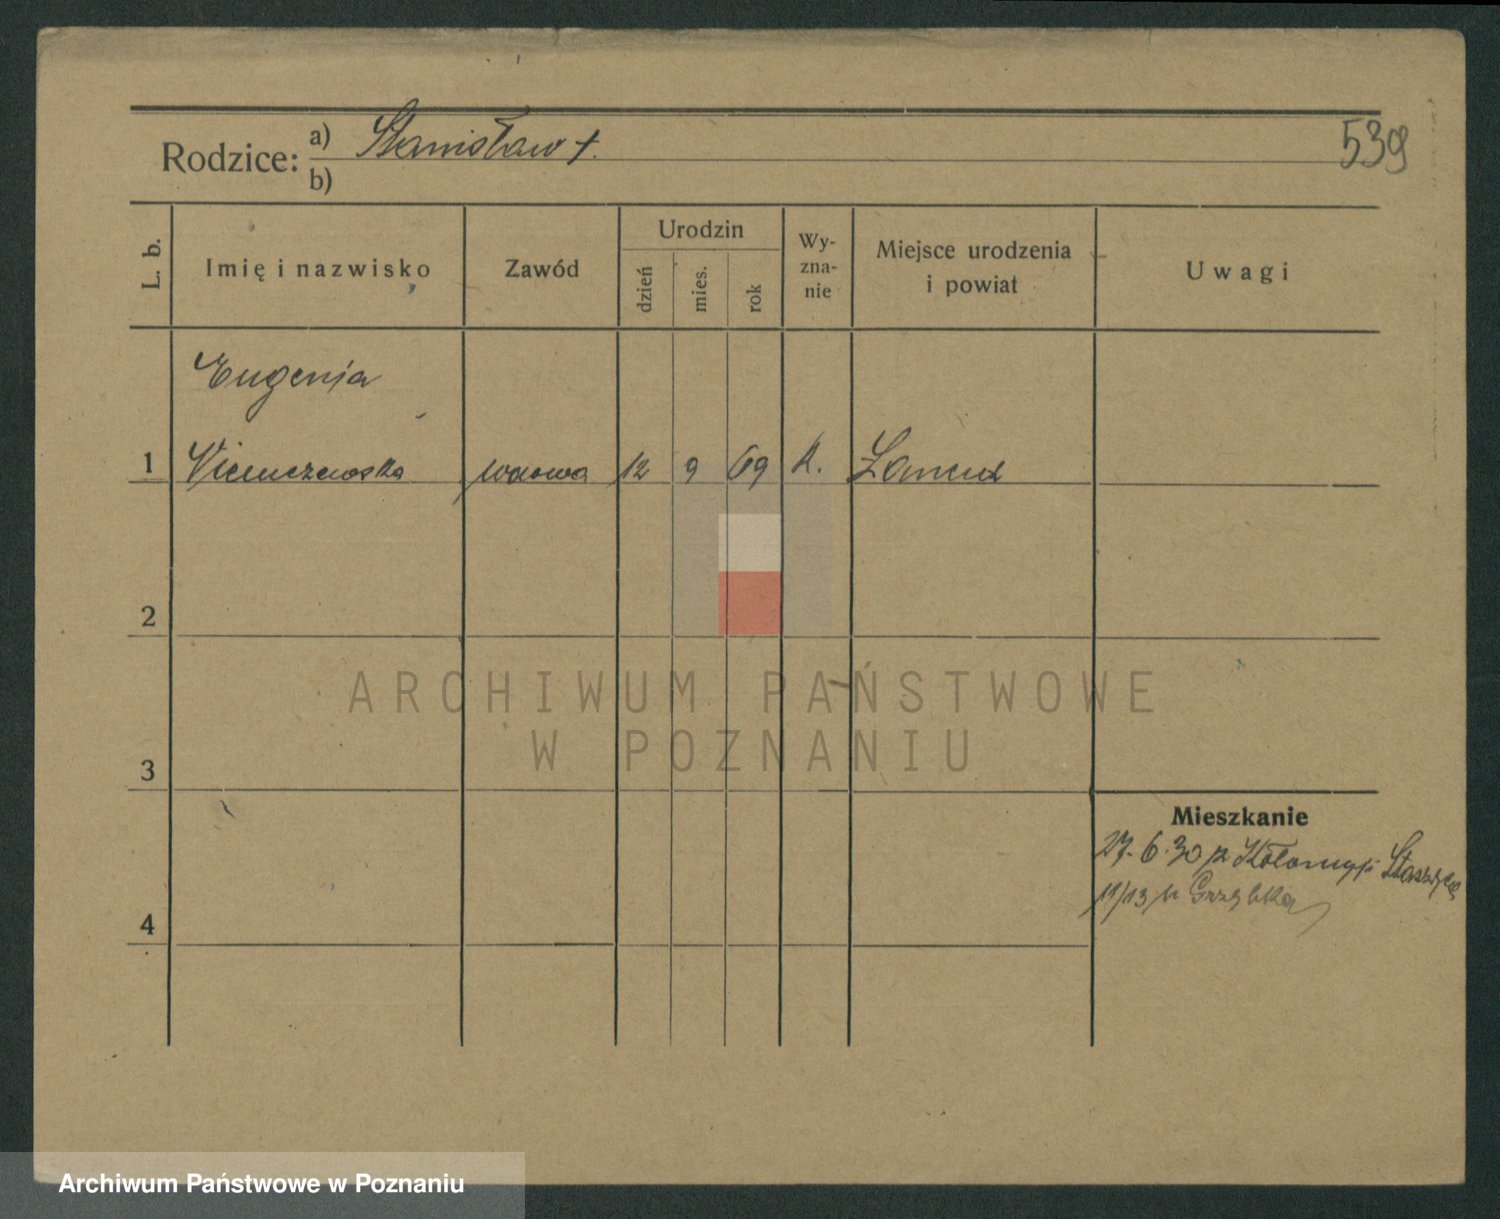 539
Rodzice: a) Stanisław †.
b)
L. b. Imię i nazwisko Zawód Urodzin dzień mies. rok Wy-zna-nie Miejsce urodzenia i powiat Uwagi
Eugenja
1 wdowa 12 9 69 k. Łańcut
2
ARCHIWUM PAŃSTWOWE
W POZNANIU
3
Mieszkanie
27. 6. 30 z Kołomyji Staszyca
11/13 u Grzybka
4
Archiwum Państwowe w Poznaniu